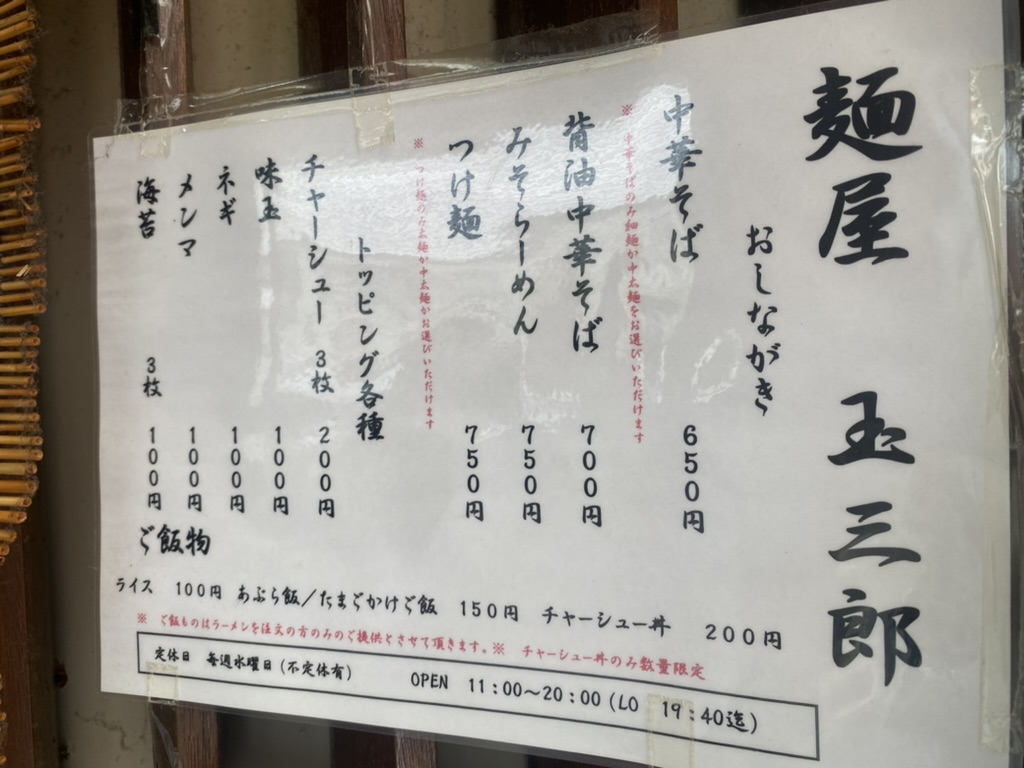 麺屋 玉三郎
おしながき
中華そば 650円
※ 中華そばのみ細麺か中太麺をお選びいただけます
背油中華そば 700円
みそらーめん 750円
つけ麺 750円
※ つけ麺のみ太麺か中太麺かお選びいただけます
トッピング各種
チャーシュー 3枚 200円
味玉 100円
ネギ 100円
メンマ 100円
海苔 3枚 100円
ご飯物
ライス 100円 あぶら飯/たまごかけご飯 150円 チャーシュー丼 200円
※ ご飯ものはラーメンを注文の方のみのご提供とさせて頂きます。※ チャーシュー丼のみ数量限定
定休日 毎週水曜日(不定休有) OPEN 11:00~20:00(LO 19:40迄)